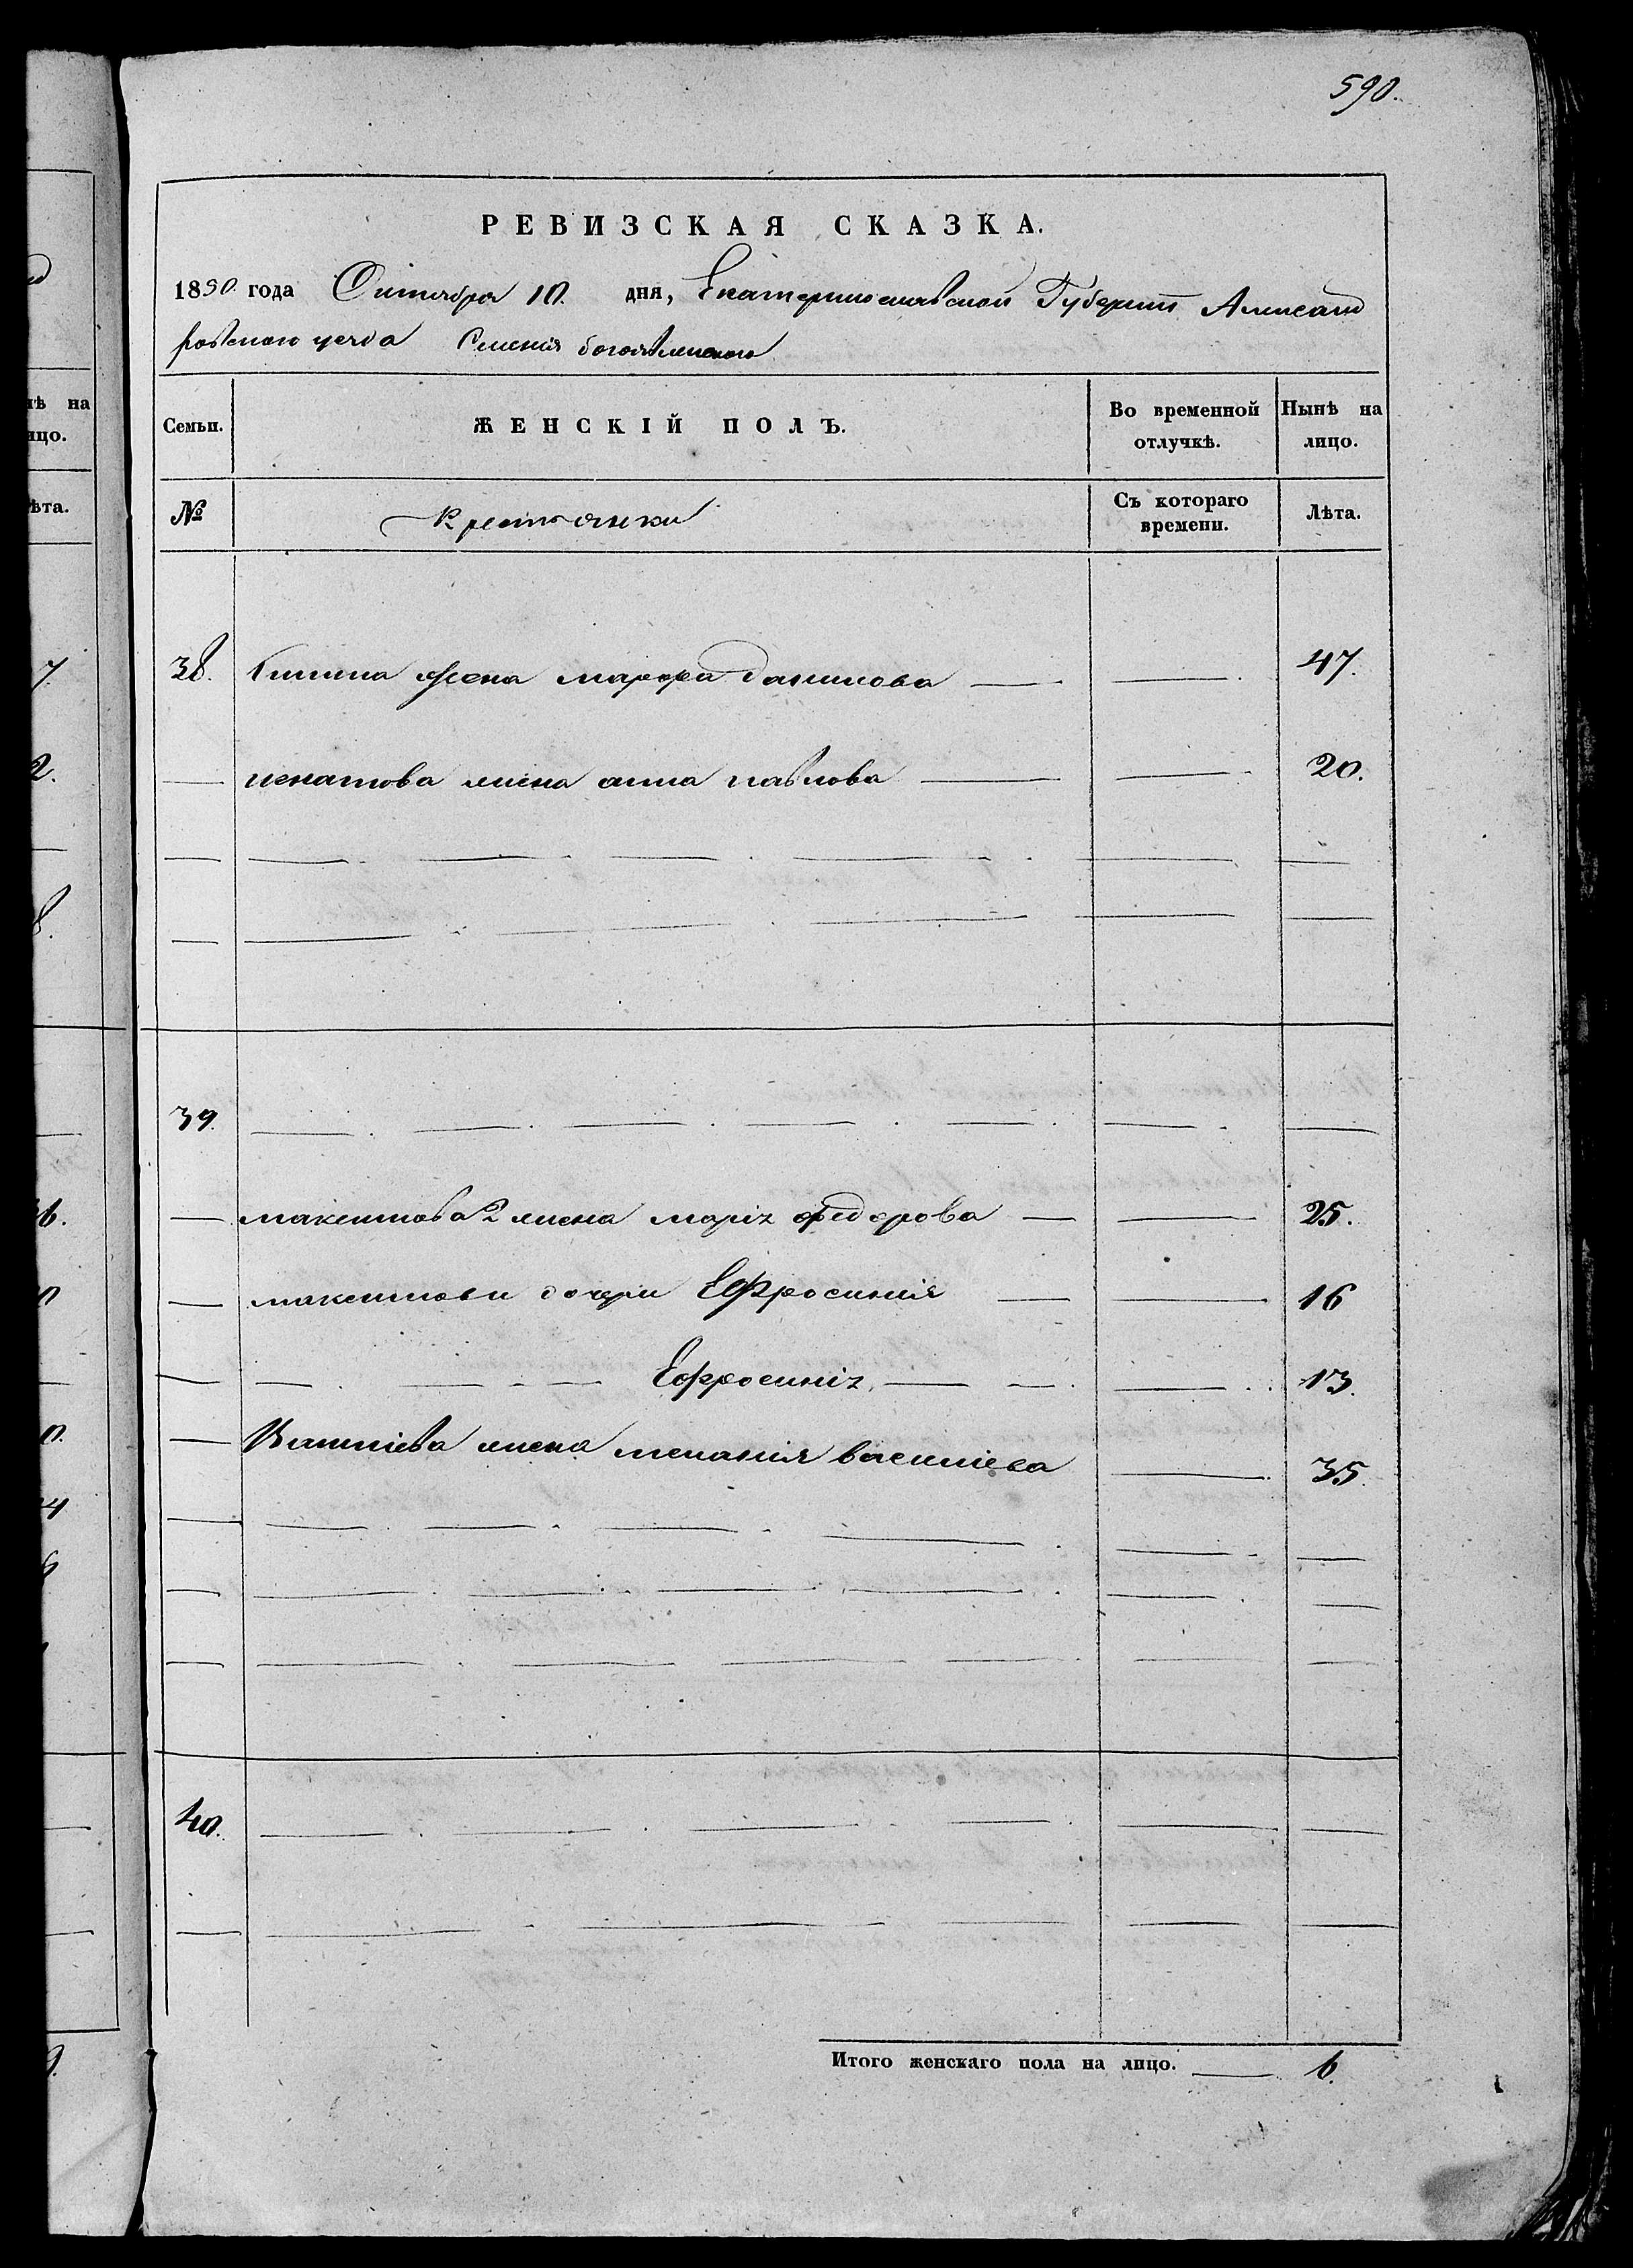 590.
РЕВИЗСКАЯ СКАЗКА.
1850 года Октября 10. дня, Екатеринославской Губерніи Александ
ровского уезда Селенія богоявленского
Семьи. ЖЕНСКІЙ ПОЛЪ. Во временной отлучкѣ. Нынѣ на лицо.
№ Крестьянки Съ котораго времени. Лѣта.
38. жена марфа данилова 47.
игнатова жена анна павлова 20.
39.
максимова 2 жена марія федорова 25.
максимови дочери Ефросинія 16
Ефросинія 13.
жена меланія василіева 35.
40.
Итого женскаго пола на лицо. 6.
нѣ на
ицо.
ѣта.
7.
2.
8.